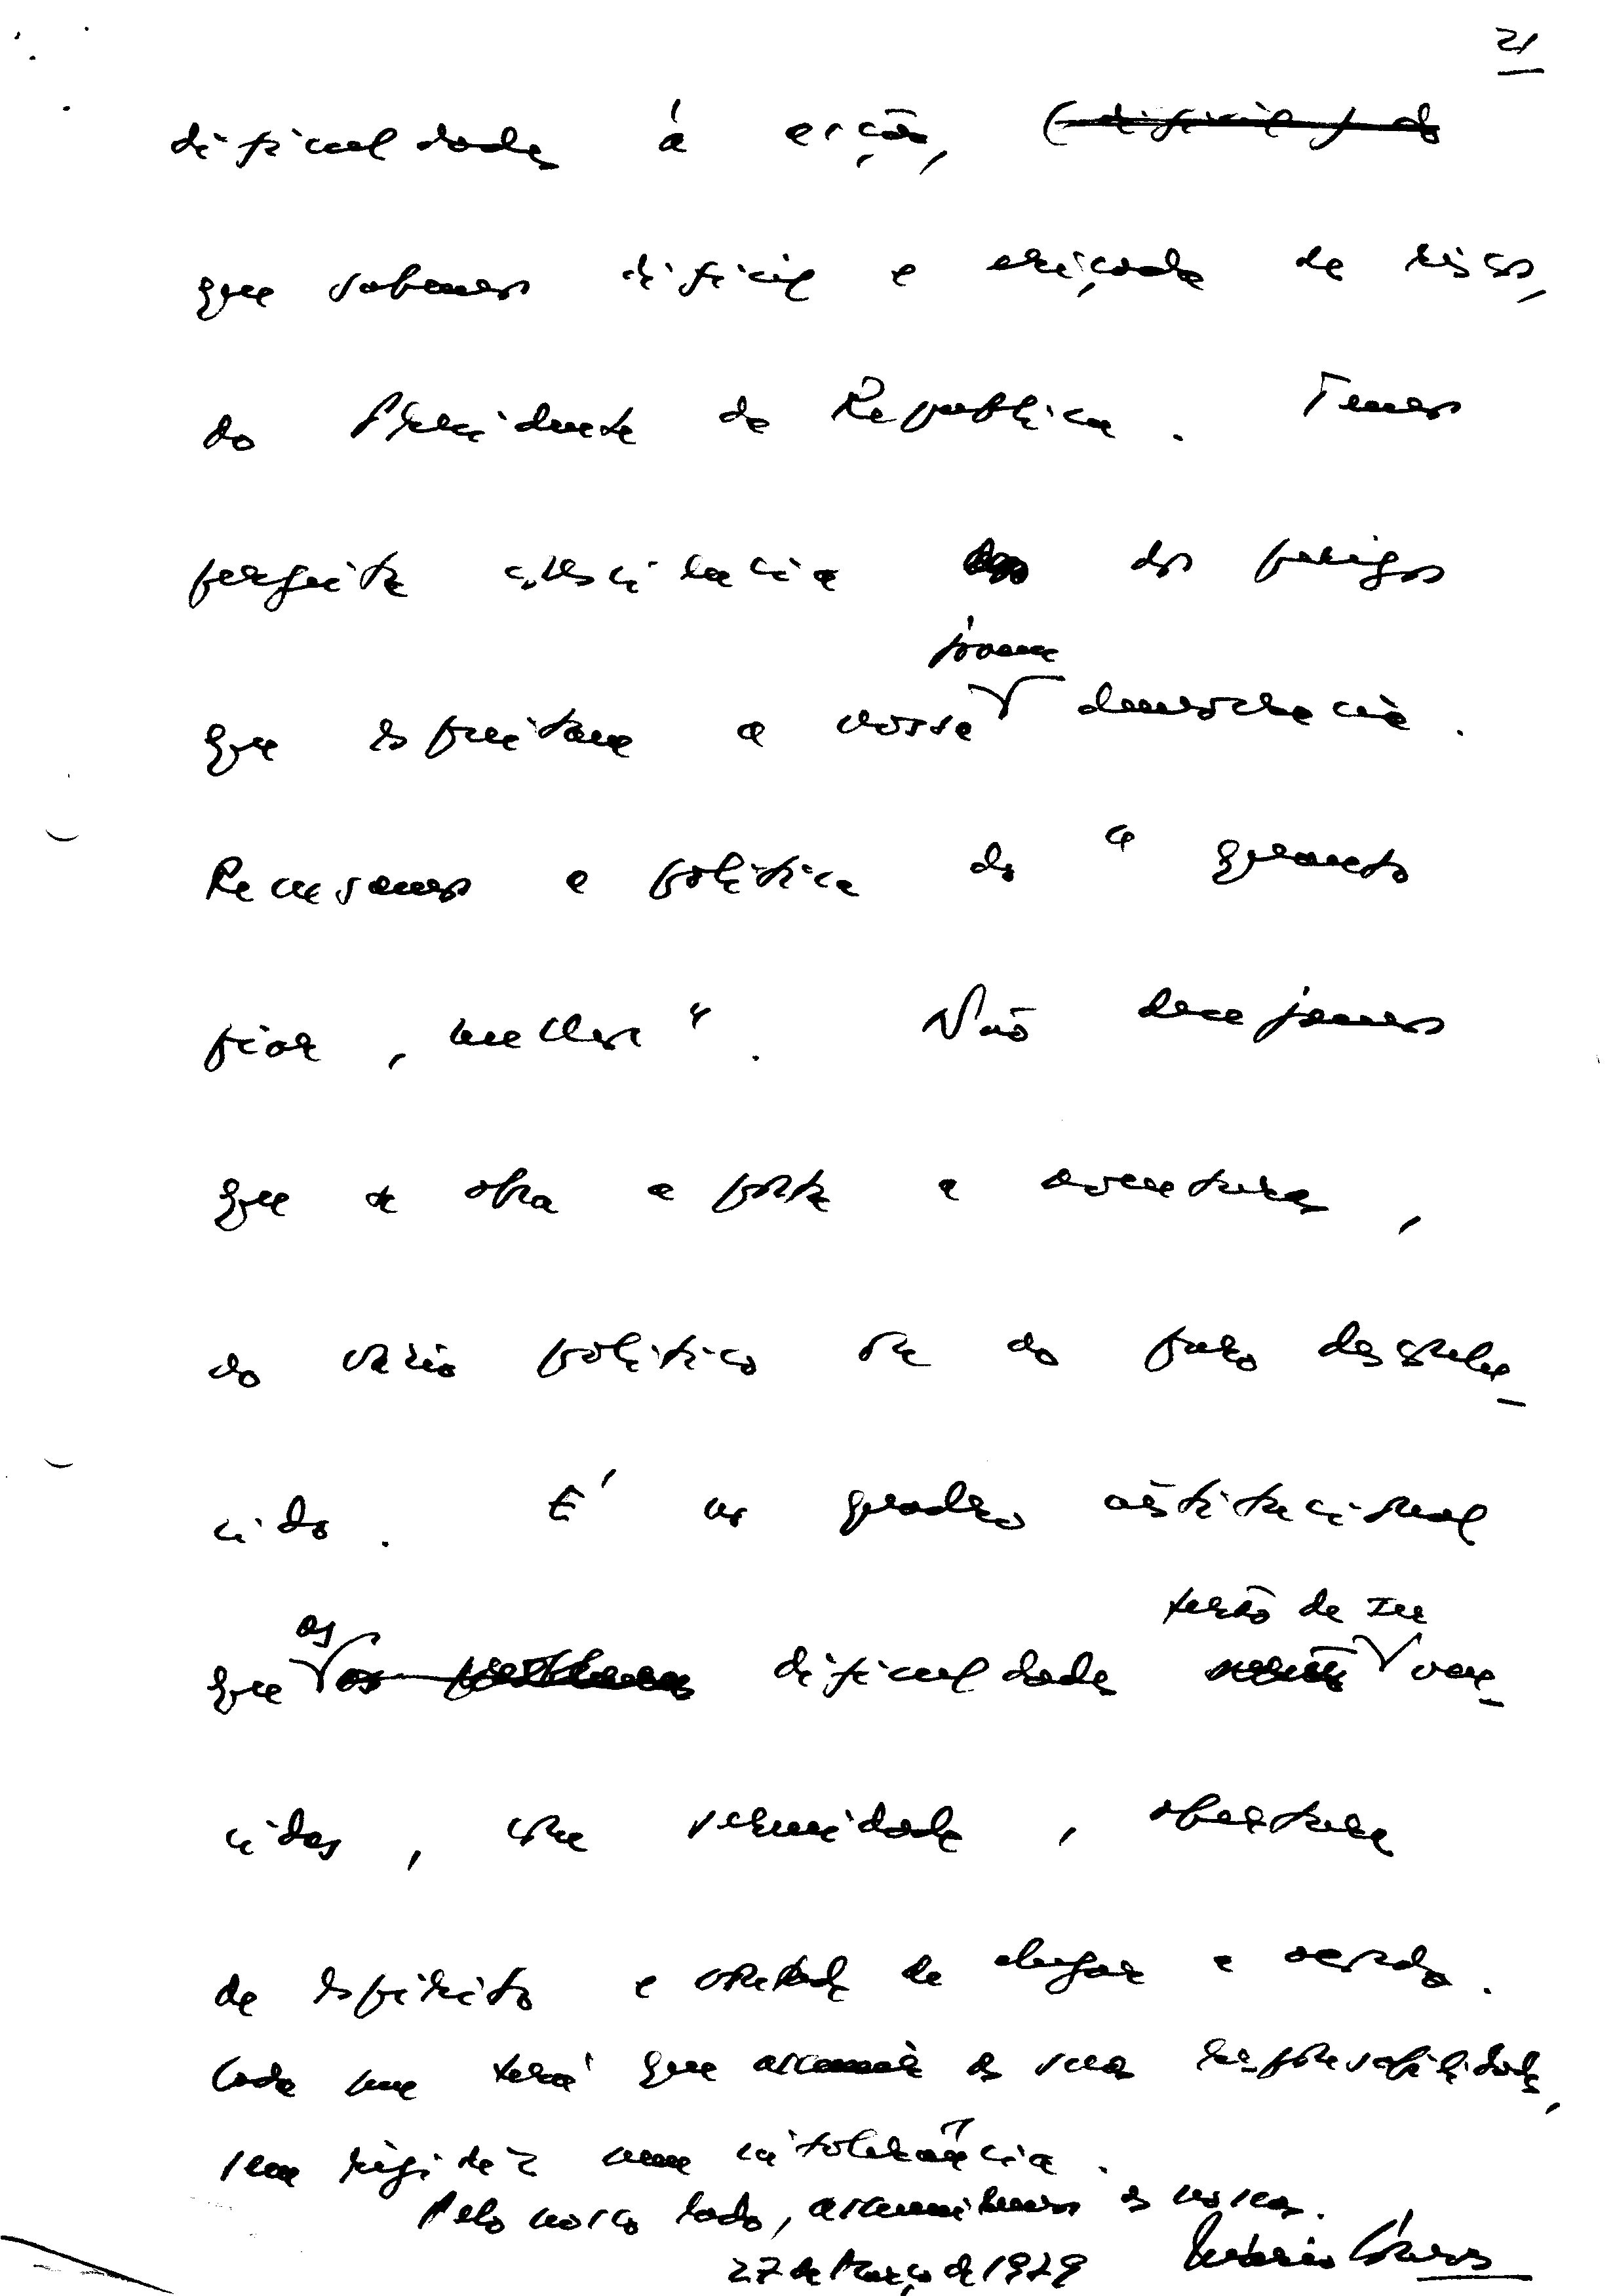 21
dificuldades à acção, (difícil) do
que sabemos difícil e eriçada de riscos,
do Presidente da Republica. Temos
perfeita consciencia dos perigos
jovem
que espreitam a nossa democracia.
Recusamos a politica do " quanto
pior, melhor ". Não desejamos
que se abra a porta a aventuras,
do vazio politico ou do puro desconhe_
cido. É no quadro institucional
as terão de ser
que os dificuldades serão ven_
cidas, com serenidade, abertura
de espirito e vontade de chegar a acordo.
Cada um terá que assumir as suas responsabilidades,
sem rigidez nem intolerância.
Pelo nosso lado, assumiremos as nossas.
27 de Março de 1979 Mário Soares